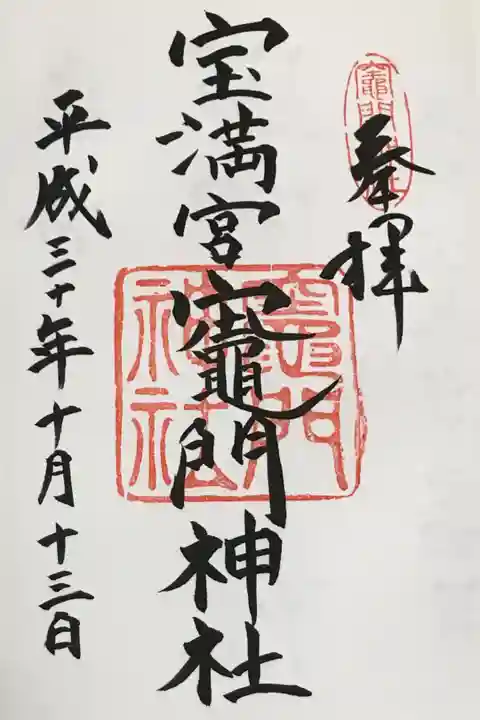 奉拝
竈門神社
宝満宮竈門神社
竈門神社
平成三十年十月十三日